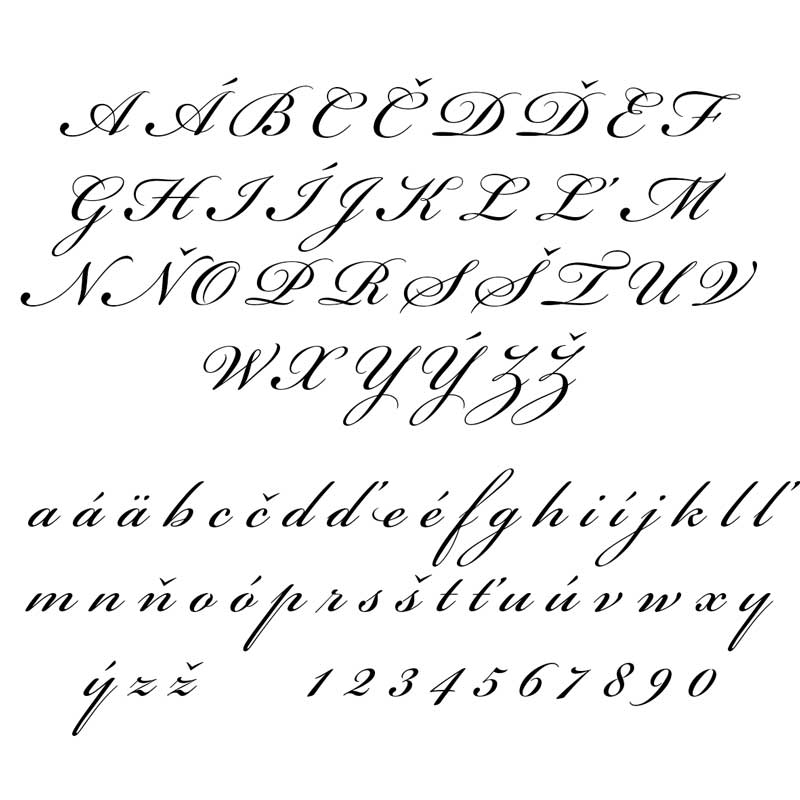 A Á B C Č D Ď E F
G H I Í J K L Ľ M
N Ň O P R S Š T U V
W X Y Ý Z Ž
a á ä b c č d ď e é f g h i í j k l ľ
m n ň o ó p r s š t ť u ú v w x y
ý z ž 1 2 3 4 5 6 7 8 9 0